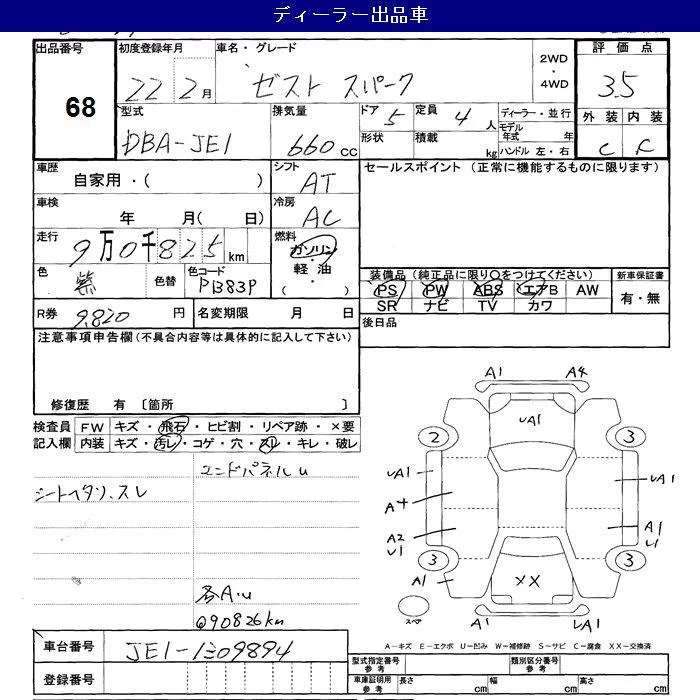 ディーラー出品車
出品番号 初度登録年月 車名・グレード 評価点
68 22 2月 ゼスト スパーク 2WD・4WD 3.5
型式 排気量 ドア 定員 ディーラー・並行 外装 内装
DBA-JE1 660cc 5 4人 モデル年式 年 C C
形状 積載 kg ハンドル 左・右
車歴 シフト セールスポイント (正常に機能するものに限ります)
自家用・( ) AT
車検 冷房
年 月( 日) AC
走行 燃料
9万0千825km ガソリン・軽油・( )
色 色替 色コード 装備品 (純正品に限り○をつけてください) 新車保証書
紫 PB83P PS PW ABS エアB AW 有・無
SR ナビ TV カワ
R券 9,820円 名変期限 月 日 後日品
注意事項申告欄 (不具合内容等は具体的に記入して下さい)
修復歴 有 〔箇所 〕
検査員 FW キズ・飛石・ヒビ割・リペア跡・×要
記入欄 内装 キズ・汚レ・コゲ・穴・スレ・キレ・破レ
エンドパネルU
シートヘタリ、スレ
各A・U
Q90826km
A1 A4
UA1
2 3
UA1 UA1
A4
A2 U1 A1 U1
3 3
A1 XX
スペア
A1 UA1
A-キズ E-エクボ U-凹み W-補修跡 S-サビ C-腐食 XX-交換済
車台番号 JE1-1309894
型式指定番号 参考 類別区分番号 参考
登録番号 車庫証明用 参考 長さ cm 幅 cm 高さ cm